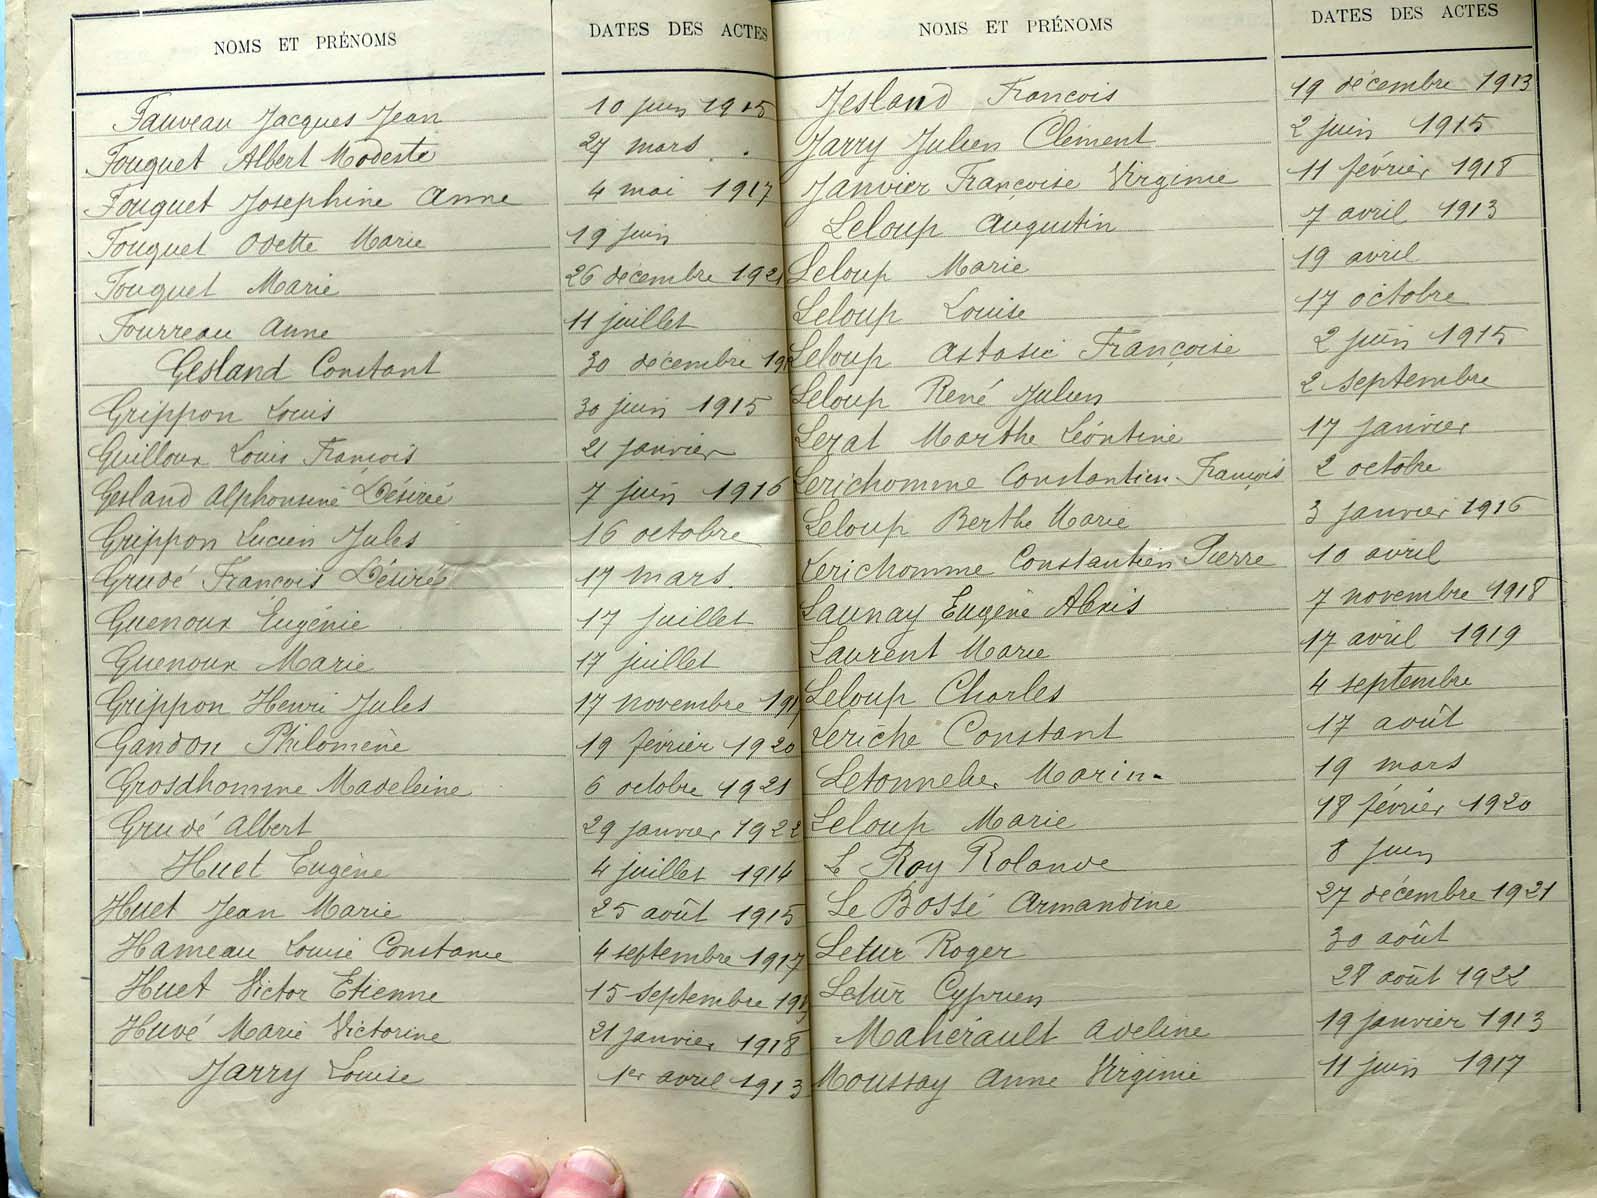 NOMS ET PRÉNOMS DATES DES ACTES
Fauveau Jacques Jean 10 juin 1915
Fouquet Albert Modeste 27 mars . .
Fouquet Josephine Anne 4 mai 1917
Fouquet Odette Marie 19 juin
Fouquet Marie 26 décembre 1921
Fourreau Anne 11 juillet
Gesland Constant 30 décembre
Grippon Louis 30 juin 1915
Guilloux Louis François 21 janvier
Gesland Alphonsine Désirée 7 juin 1916
Grippon Lucien Jules 16 octobre
Grudé François Désiré 17 mars.
Guenoux Eugénie 17 juillet
Guenoux Marie 17 juillet
Grippon Henri Jules 17 novembre
Gandon Philomène 19 février 1920
Grosdhomme Madeleine 6 octobre 1921
Grudé Albert 29 janvier 1922
Huet Eugène 4 juillet 1914
Huet Jean Marie 25 août 1915
Hameau Louise Constance 4 septembre 1917
Huet Victor Etienne 15 septembre
Huvé Marie Victorine 21 janvier 1918
Jarry Louise 1er avril 1913
NOMS ET PRÉNOMS DATES DES ACTES
Jesland François 19 décembre 1913
Jarry Julien Clément 2 juin 1915
Janvier Françoise Virginie 11 février 1918
Leloup Augustin 7 avril 1913
Leloup Marie 19 avril
Leloup Louise 17 octobre
Leloup Astasie Françoise 2 juin 1915
Leloup René Julien 2 septembre
Lezat Marthe Léontine 17 janvier
Lerichomme Constantien François 2 octobre
Leloup Berthe Marie 3 janvier 1916
Lerichomme Constantien Pierre 10 avril
Launay Eugène Alexis 7 novembre 1918
Laurent Marie 17 avril 1919
Leloup Charles 4 septembre
Leriche Constant 17 août
Letonnelier Marin 19 mars
Leloup Marie 18 février 1920
Le Roy Rolande 8 juin
Le Bossé Armandine 27 décembre 1921
Letur Roger 30 août
Letur Cyprien 28 août 1922
Mahérault Adeline 19 janvier 1913
Moussay Anne Virginie 11 juin 1917